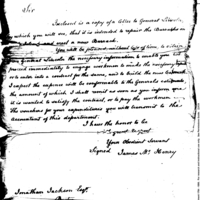 Sir
Inclosed is a copy of a letter to General Lincoln,
which you will see, that it is intended to repair the Barracks on
and erect a new Barrack.
You will be pleased without loss of time, to
General Lincoln the necessary information to enable you
proceed immediately to engage workmen to make the necessary
or to enter into a contract for the same, and to build the new Barrack
I expect the expence will be conformable to the Generals estimate
the amount of which I shall remit as soon as you inform me,
it is wanted to satisfy the contract, or to pay the workmen
the vouchers for your expenditures you will transmit to the
Accountant of this department.
I have the honor to be
with great respect
Your Obedient Servant
Signed James McHenry
Jonathan Jackson Esqr.
Boston